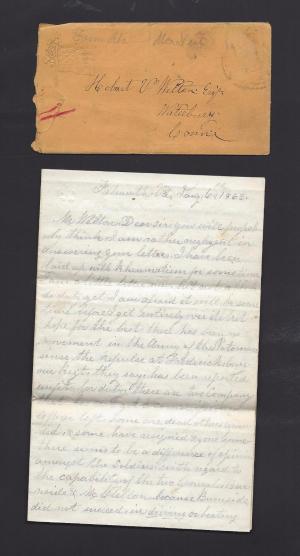 Hobart V. Welton Esq.
Waterbury
Conn.
Falmouth Va. Jany 6th 1863.
Mr Welton. Dear sir you will perhaps
think I am rather negligent in
answering your letter. I have been
laid up with Rheumatism for sometime
am a little better now but not able
to do duty yet I am afraid it will be some
time before I get entirely over it but
hope for the best there has been no
movement in the Army of the Potomac
since the repulse at Fredericksburg
our Regt they say has been reported
unfit for duty. there are two Company
left home are dead others
& some have resigned & gone home
there seems to be a difference of opinion
amongst the Soldiers with regard to
the capability of the two Generals Burn
side & McClellan because Burnside
did not succeed in driving or beating